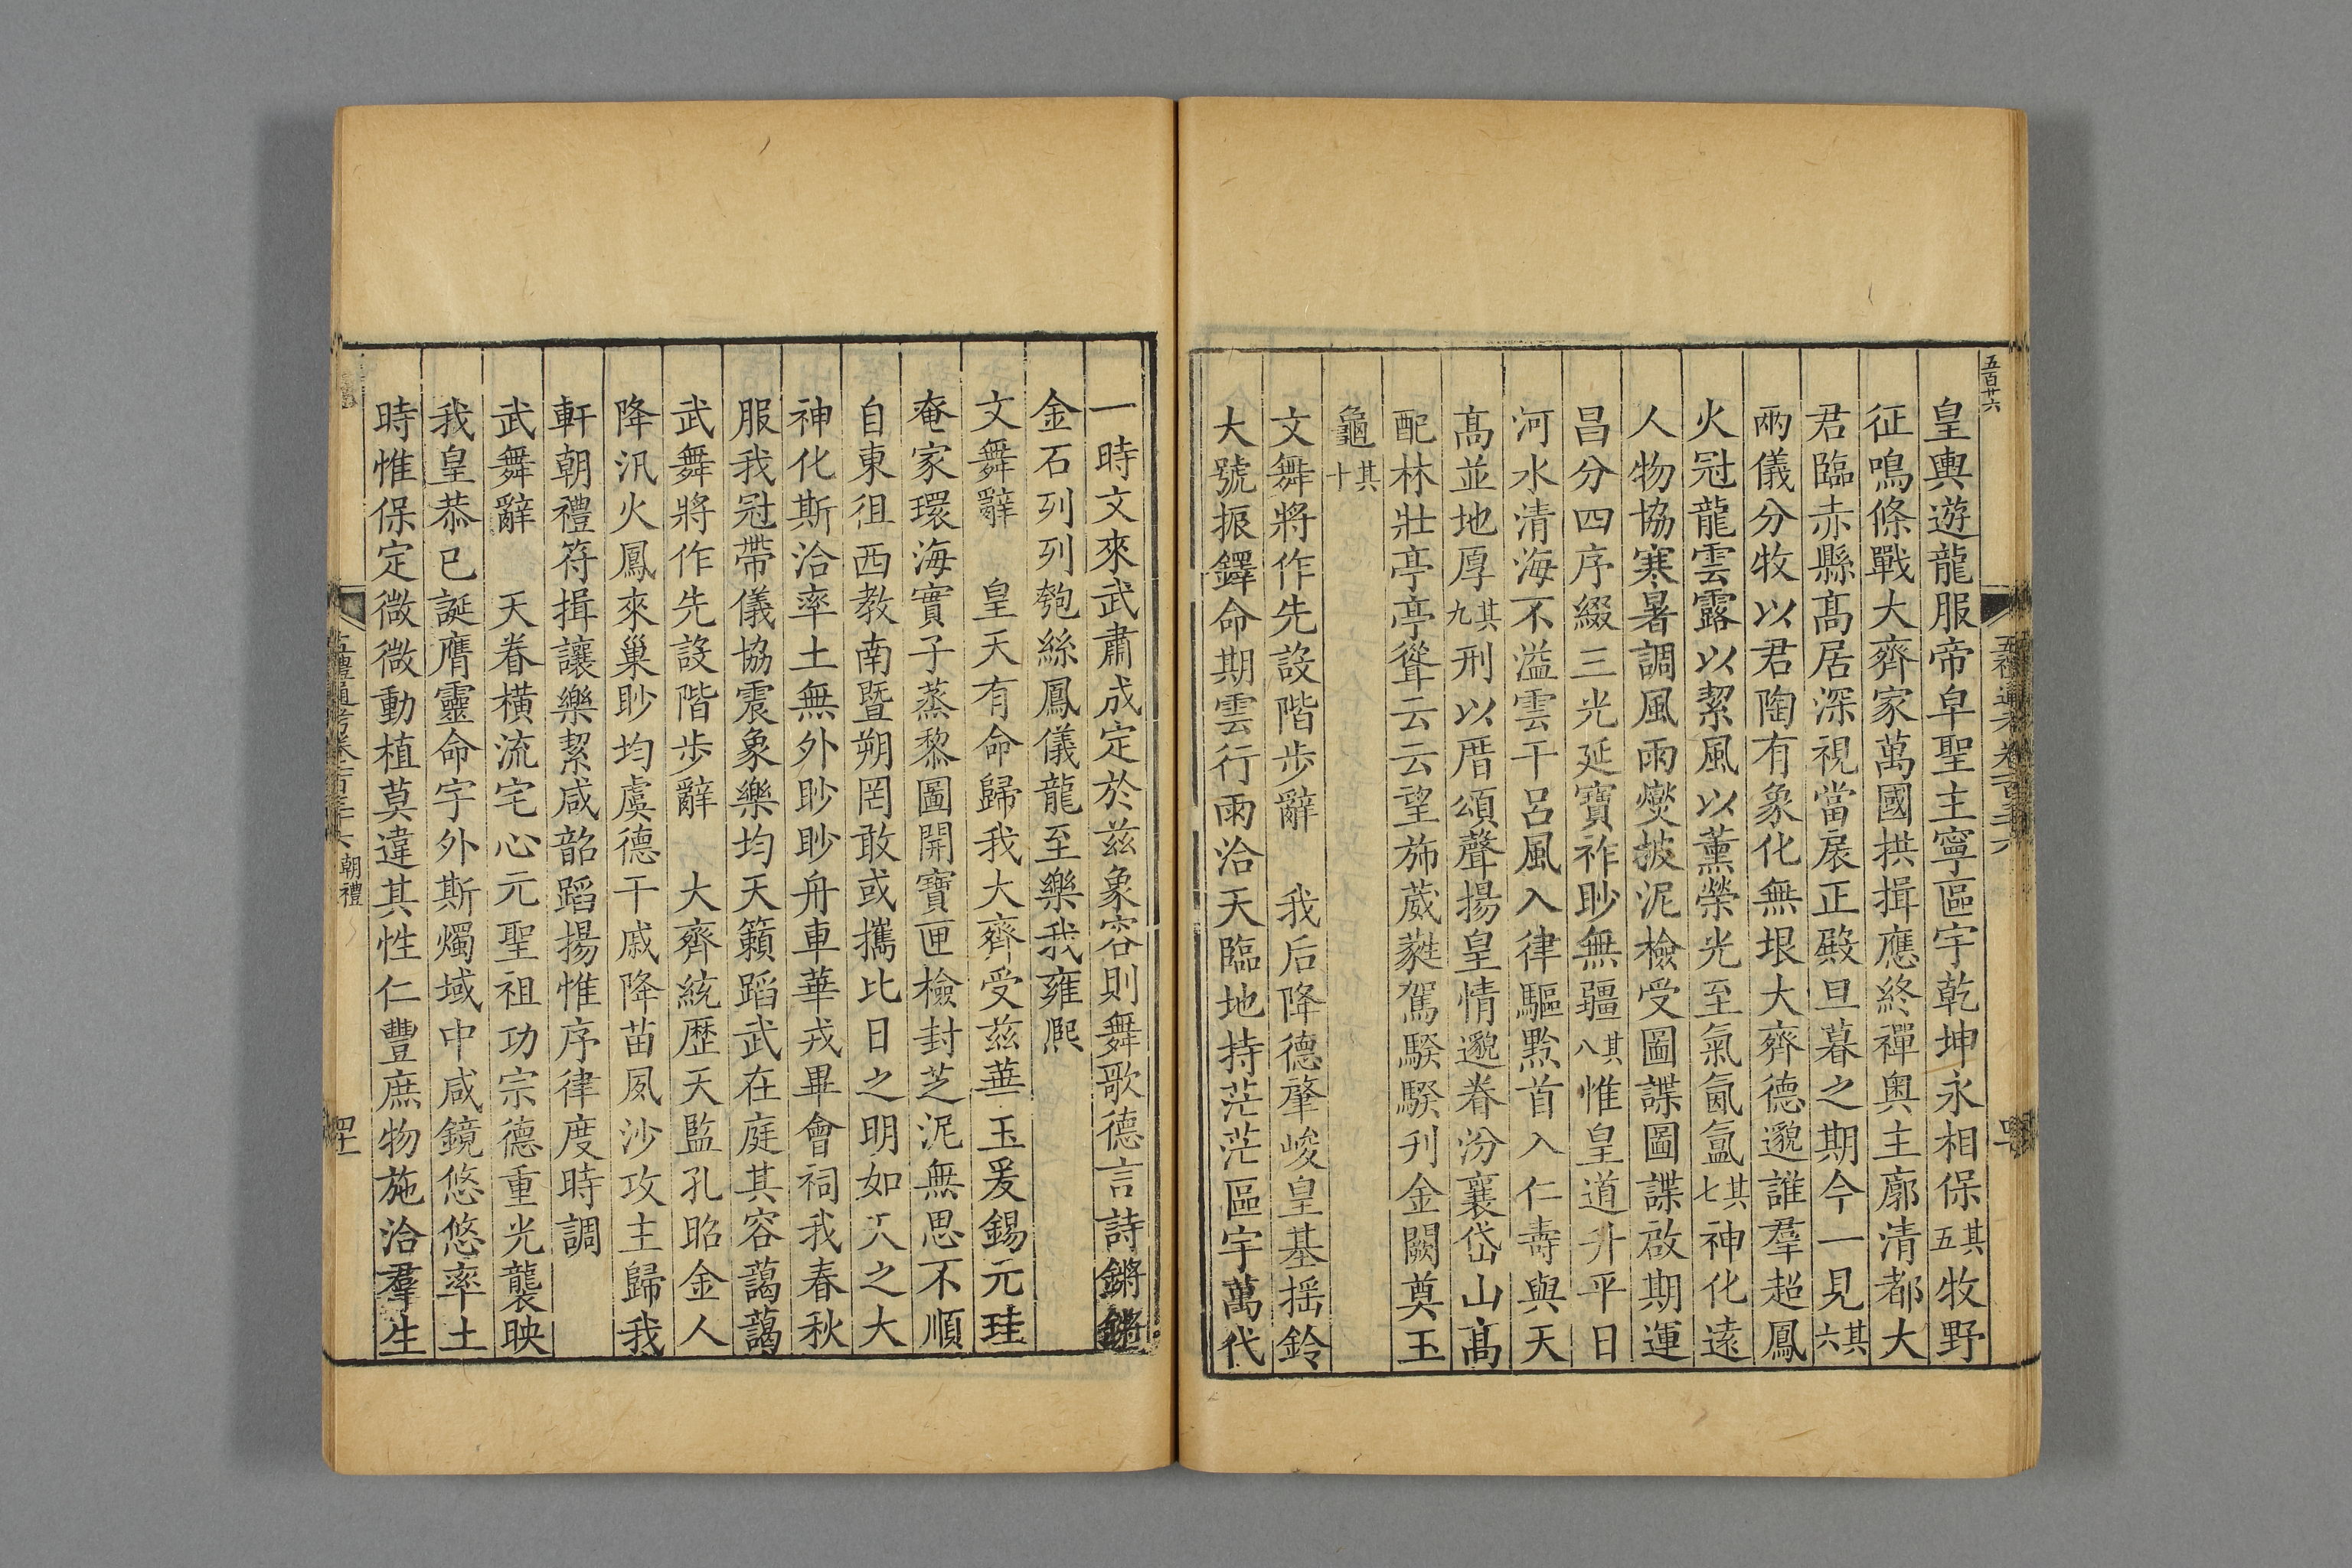 五百廿六
皇輿遊龍服帝皁聖主寧區宇乾坤永相保其五牧野
征鳴條戰大齊家萬國拱揖應終禪奧主廓清都大
君臨赤縣高居深視當扆正殿旦暮之期今一見其六
兩儀分牧以君陶有象化無垠大齊德邈誰羣超鳳
火冠龍雲露以絜風以薰榮光至氣氤氳其七神化遠
人物協寒暑調風雨燮披泥檢受圖諜圖諜啟期運
昌分四序綴三光延寶祚眇無疆其八惟皇道升平日
河水清海不溢雲干呂風入律驅黔首入仁壽與天
高並地厚其九刑以厝頌聲揚皇情邈眷汾襄岱山高
配林壯亭亭聳云云望斾葳蕤駕騤騤刋金闕奠玉
龜其十
文舞將作先設階步辭　我后降德肇峻皇基揺鈴
大號振鐸命期雲行雨洽天臨地持茫茫區宇萬代
一時文來武肅成定於茲象容則舞歌德言詩鏘鏘
金石列列匏絲鳳儀龍至樂我雍熙
文舞辭　皇天有命歸我大齊受茲華玉爰錫元珪
奄家環海實子蒸黎圖開寶匣檢封芝泥無思不順
自東徂西教南暨朔罔敢或攜比日之明如天之大
神化斯洽率土無外眇眇舟車華戎畢會祠我春秋
服我冠帶儀協震象樂均天籟蹈武在庭其容藹藹
武舞將作先設階步辭　大齊統歷天監孔昭金人
降汛火鳳來巢眇均虞德干戚降苗夙沙攻主歸我
軒朝禮符揖讓樂契咸韶蹈揚惟序律度時調
武舞辭　天眷橫流宅心元聖祖功宗德重光襲映
我皇恭已誕膺靈命宇外斯燭域中咸鏡悠悠率土
時惟保定微微動植莫違其性仁豐庶物施洽羣生
五禮通考卷一百三十六　朝禮